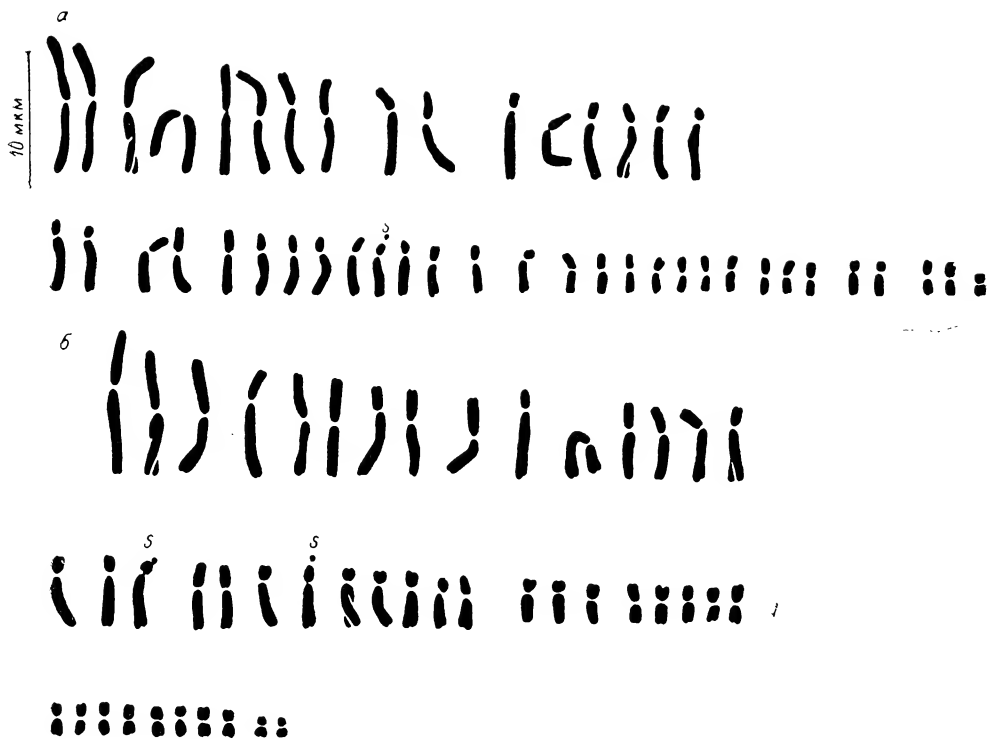 а
10 мкм
s
б
s s